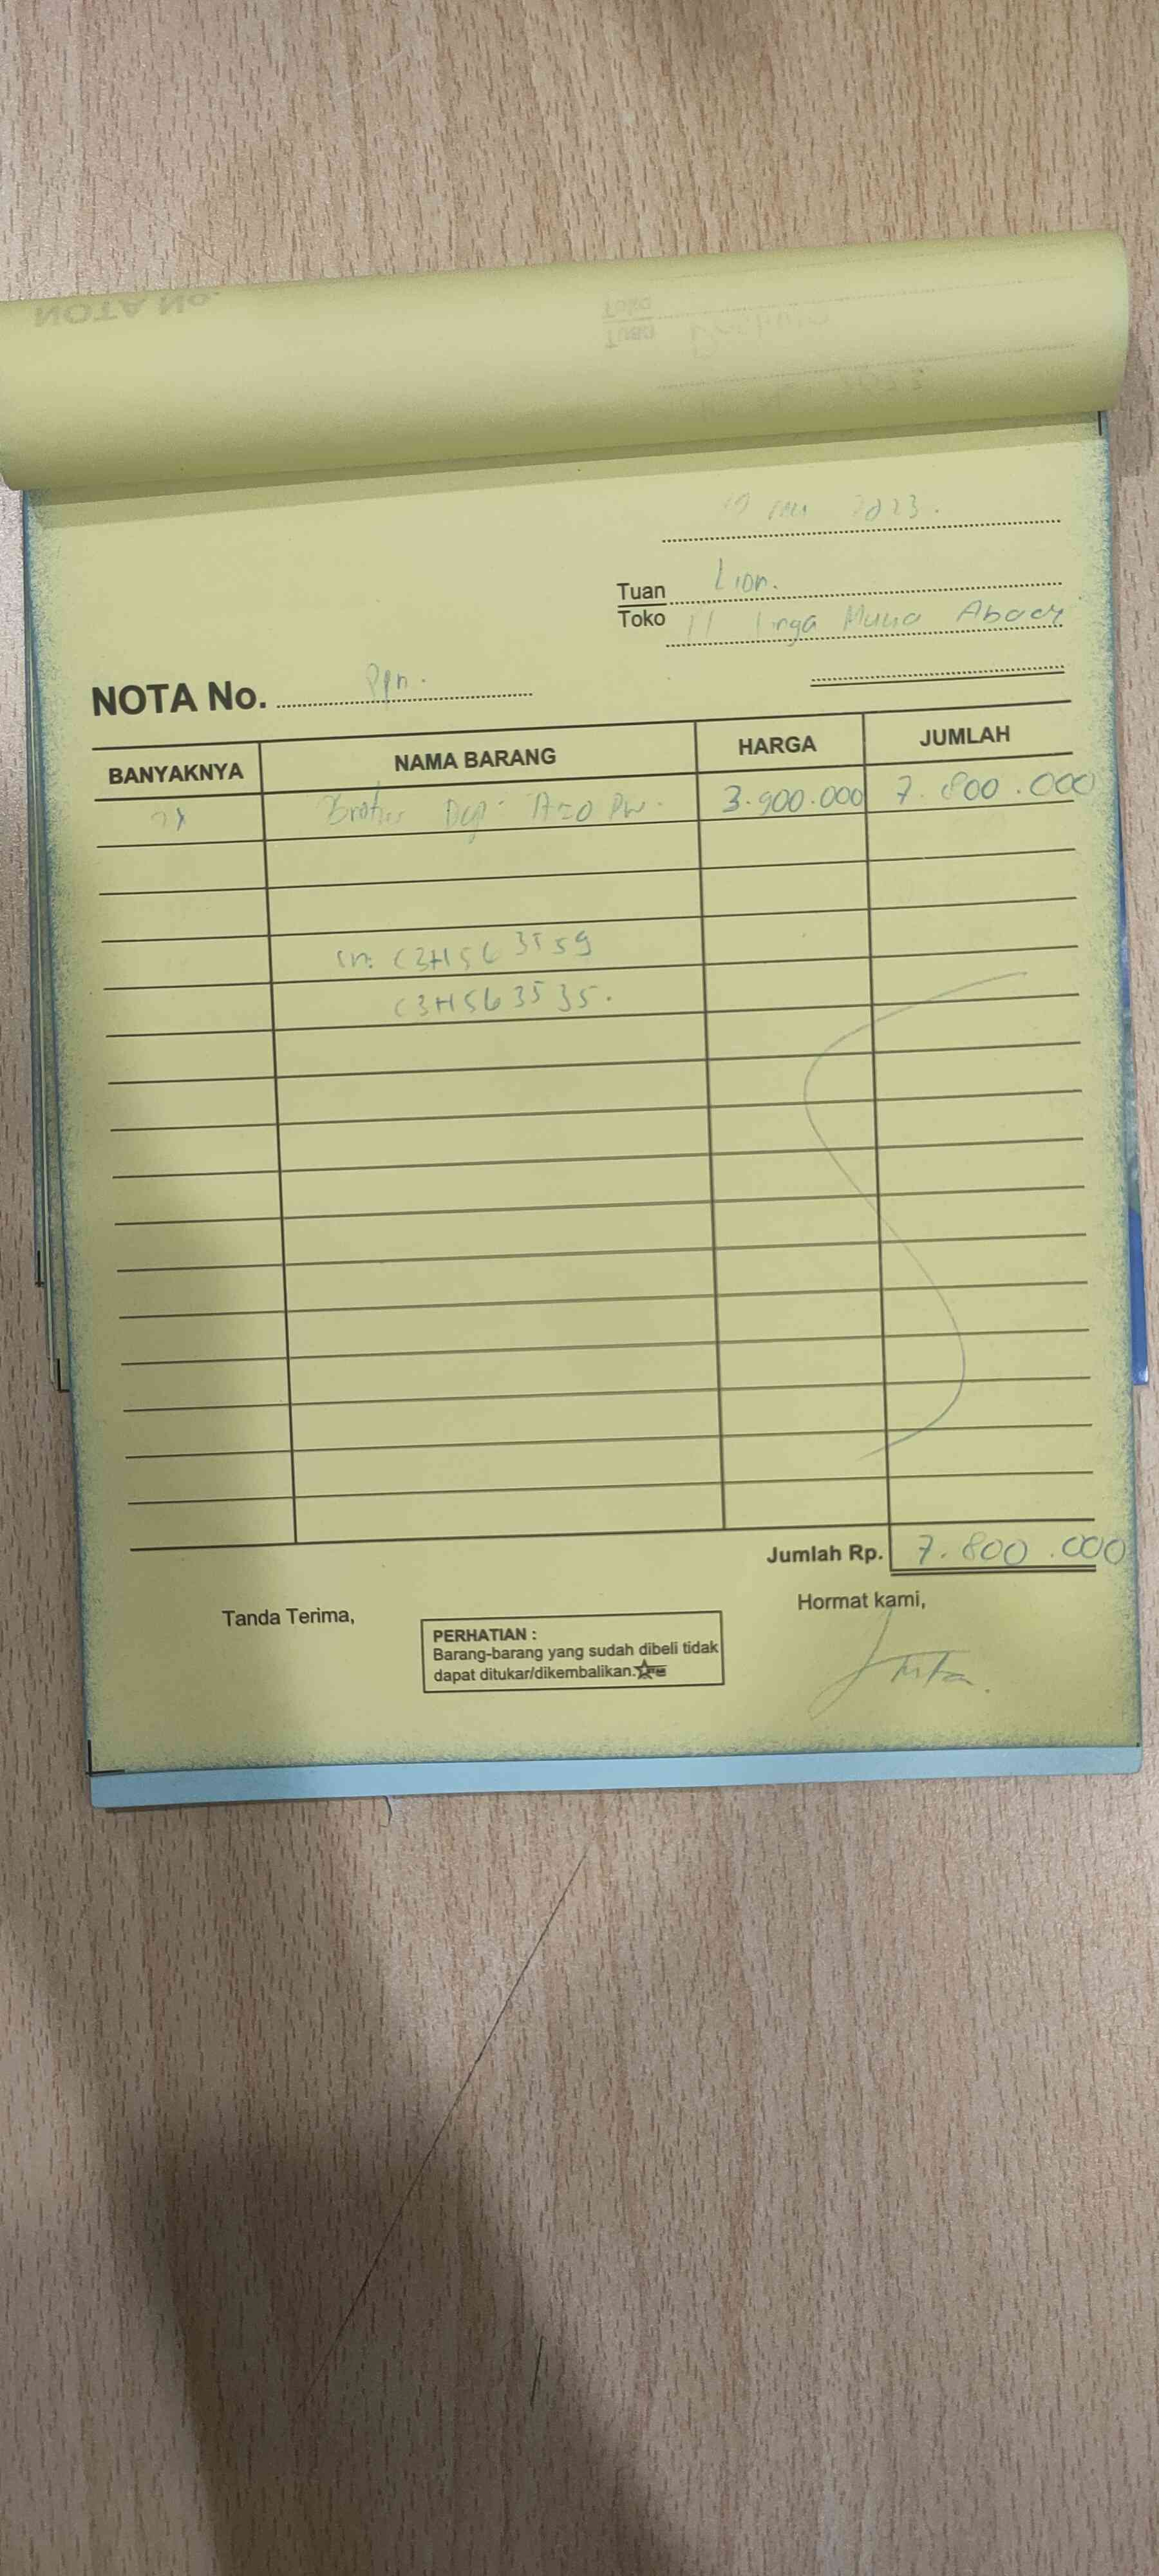 NOTA No.
Toko
Tuan
2023.
Tuan Lion.
Toko Abadi
NOTA No. Ppn.
BANYAKNYA NAMA BARANG HARGA JUMLAH
2x Brother Dcp 3.900.000 7.800.000
sn: C3H563559
C3H563535.
Jumlah Rp. 7.800.000
Tanda Terima, Hormat kami,
PERHATIAN :
Barang-barang yang sudah dibeli tidak
dapat ditukar/dikembalikan.